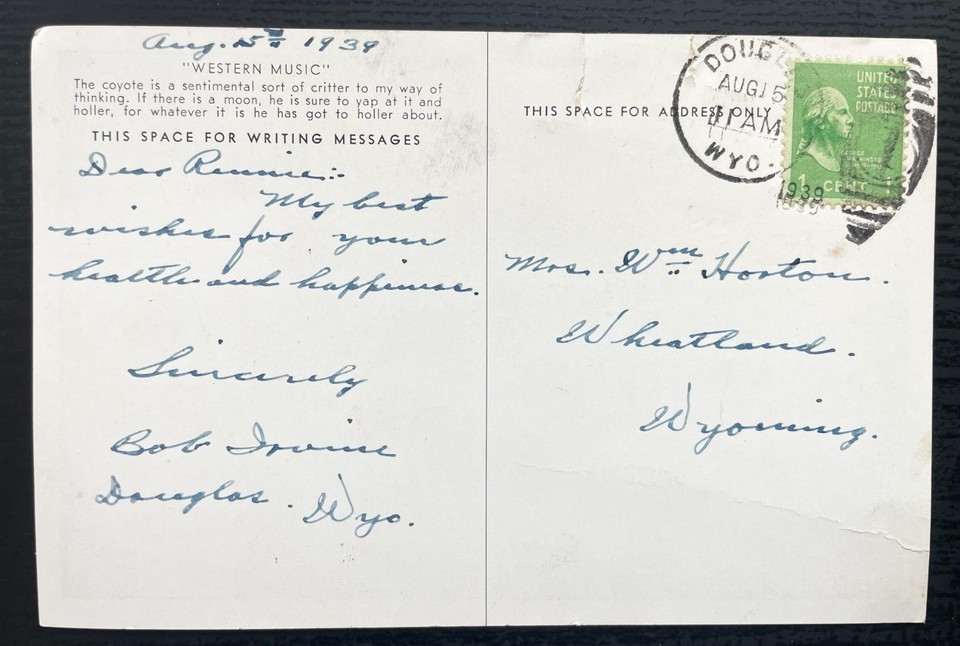 Aug. 15th 1939
"WESTERN MUSIC"
The coyote is a sentimental sort of critter to my way of
thinking. If there is a moon, he is sure to yap at it and
holler, for whatever it is he has got to holler about.
THIS SPACE FOR WRITING MESSAGES
Dear Rennie:-
My best
wishes for your
health and happiness.
Sincerely
Bob Irvine
Douglas. Wyo.
THIS SPACE FOR ADDRESS ONLY
DOUGL
AUG 15
11 AM
WYO.
1939
UNITED
STATES
POSTAGE
GEORGE
WASHINGTON
1 CENT 1
Mrs. Wm Horton.
Wheatland.
Wyoming.